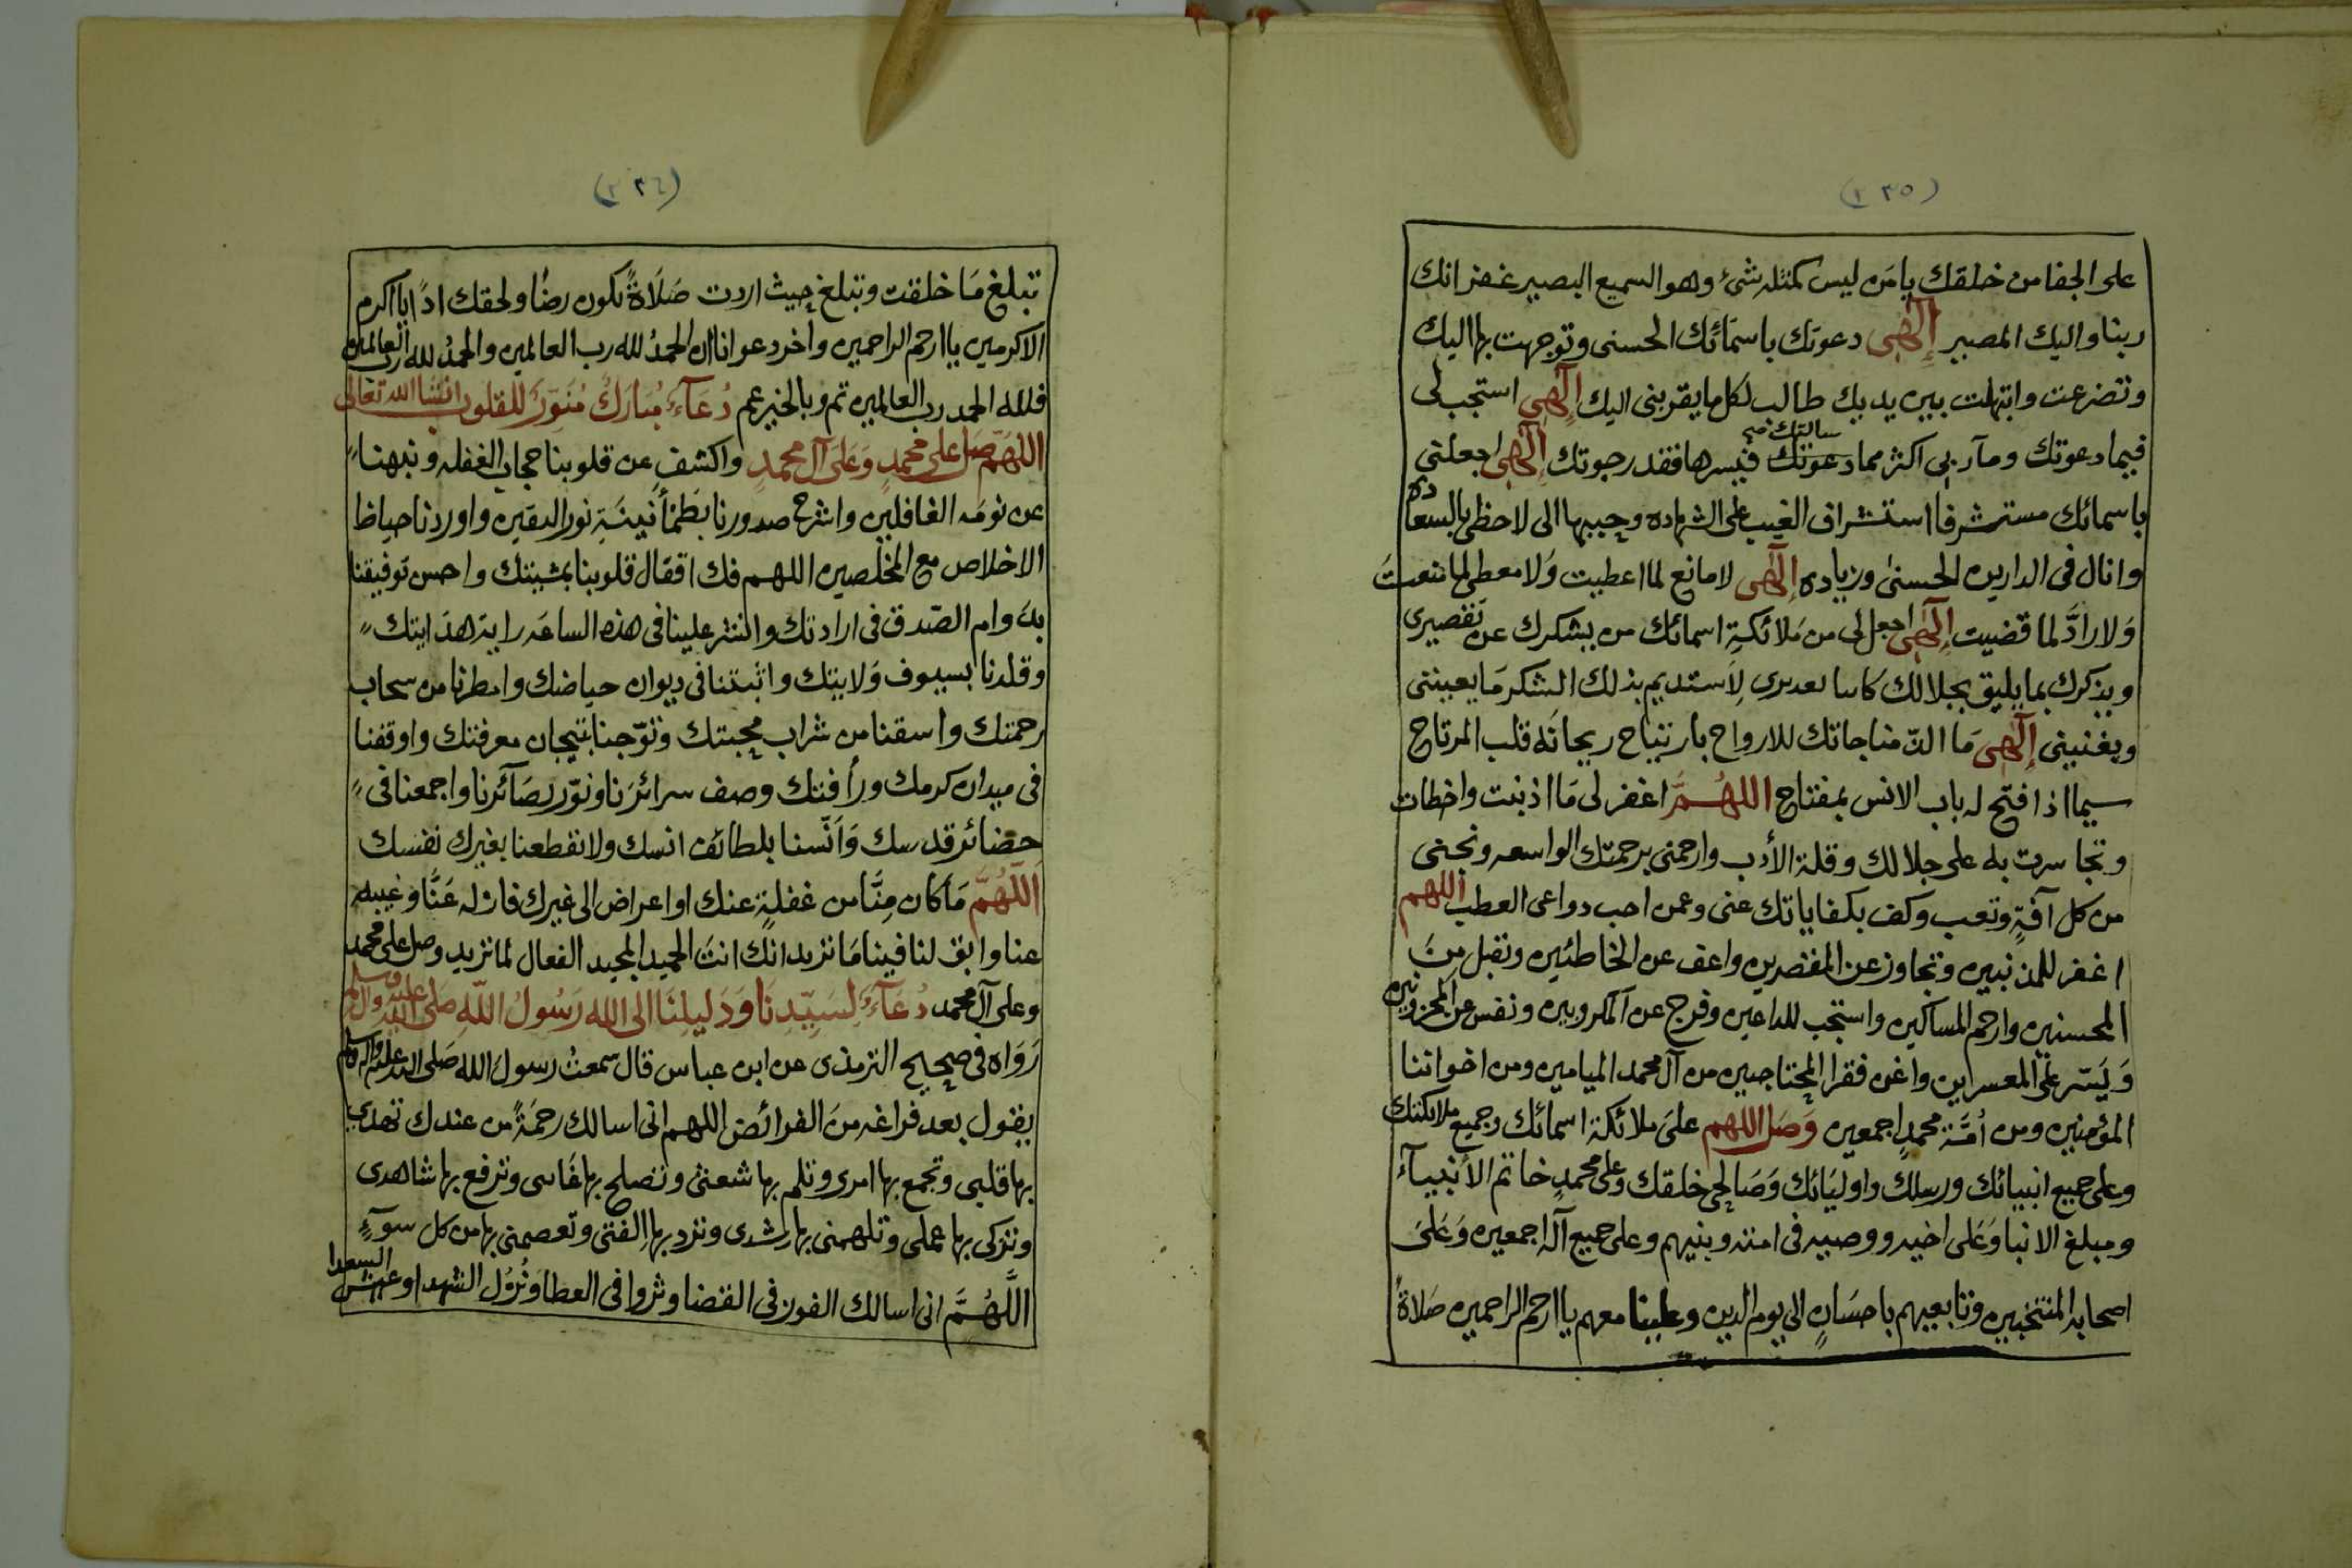 (٢٣٥)
على الجفا من خلقك يا من ليس كمثله شئ وهو السميع البصير غفرانك
ربنا واليك المصير إلٓهي دعوتك باسمائك الحسنى وتوجهت بها اليك
وتضرعت وابتهلت بين يديك طالب لكل ما يقربنى اليك إلٓهي استجب لى
سالتك
فيما دعوتك ومآربى اكثر مما دعوتك فيسرها فقد رجوتك إلٓهي اجعلنى
باسمائك مستشرفا استشراف الغيب على الشهاده وحببها الى لاحظى بالسعاده
وانال فى الدارين الحسنى وزياده إلٓهي لا مانع لما اعطيت وَلا معطى لما منعتَ
وَلا رادَّ لما قضيت إلٓهي اجعل لى من مَلائكةِ اسمائك من يشكرك عن تقصيرى
ويذكرك بما يليق بجلالك لاَستديم بذلك الشكر مَا يعيننى
ويغنينى إلٓهي مَا الذّ مناجاتك للارواح بارتياح ريحانَه قلب المرتاح
سيما اذا فتح له باب الانس بمفتاح اللهُمَّ اغفر لى مَا اذنبت واخطات
وتجاسرت به على جلالك وقلة الأدب وارحمنى برحمتك الواسعه ونجنى
من كل آفةٍ وتعب وكف بكفاياتك عنى وعمن احب دواعى العطب اللهم
اغفر للمذنبين وتجاوز عن المقصرين واعف عن الخاطئين وتقبل مِنَ
المحسنين وارحم المساكين واستجب للداعين وفرج عن المكروبين ونفس عن المحزونين
وَيَسّر على المعسراين واغن فقرا المحتاجين من آل محمد الميامين ومن اخواننا
المؤمنين ومن أمَّة محمدٍ اجمعين وَصَل اللهم علىَ ملائكة اسمائك وجميع ملائكتك
وعلى جميع انبيائك ورسلك واوليَائك وَصَالحى خلقك وعلى محمدٍ خاتم الأنبيآء
ومبلغ الانبا وَعَلى اخيه ووصيه فى امته وبنيهم وعلى جميع آله اجمعين وَعَلىَ
اصحابه المنتخبين وتابعيهم باحسَانٍ الى يوم الدين وعلينا معهم يا ارحم الراحمين صَلاةً
(٢٣٦)
تبلغ مَا خلقت وتبلغ حيث اردت صَلَاةً تكون رضًا ولحقك ادًا يا اكرم
الاكرمين يا ارحم الراحمين واخر دعوانا ان الحمدُ لله رب العالمين والحمدُ لله رب العالمين
فلله الحمد رب العالمين تم وبالخير عم دُعَآءٌ مُبَارَكٌ مُنَوِّرٌ للقلوب انشا الله تعالى
اللهمَّ صَل على محمدٍ وَعَلى آل محمدٍ واكشف عن قلوبنا حجاب الغفله ونبهنا
عن نومَه الغافلين واشرح صدورنا بطَمْأنينَةِ نور اليقين واوردنا حياظ
الاخلاص مع المخلصين اللهم فك اقفال قلوبنا بمشيتك واحسن توفيقنا
بدَوام الصّدق فى ارادتك وانشر علينا فى هذه الساعَه راية هدَايتك
وقلدنا بسيوف وَلايتك واثبتنا فى ديوان حياضك وامطرنا من سحاب
رحمتك واسقنا من شراب محبتك وتوّجنا بتيجان معرفتك واوقفنا
فى ميدان كرمك ورأفتك وصف سرائرنا ونوّر بصَآئرنا واجمعنا فى
حضائر قدسك وَآنّسنا بلطائف انسك ولا تقطعنا بغيرك نفسك
اَللّهُمَّ مَا كان مِنَّا من غفلةٍ عنك او اعراض الى غيرك فازله عَنَّا وغيبه
عنا وابق لنا فينا مَا تريد انك انتَ الحميد المجيد الفعال لما تريد وصل على محمد
وعلى آل محمد دُعَآءٌ لِسَيِّدِنَا وَدَلِيلِنَا الى الله رَسُولُ اللّهِ صَلى الله عليه وآله وسلم
رَوَاه فى صحيح الترمذى عن ابن عباس قال سمعتُ رسولَ الله صَلى الله عليه وآله وسلم
يقول بعد فراغه منَ الفرائض اللهم انى اسالك رحمَةً من عندك تهدى
بها قلبى وتجمع بها امرى وتلم بها شعثى وتصلح بها غَائبى وترفع بها شاهدى
وتزكى بها عملى وتلهمنى بها رشدى وترد بها اِلفتى وتعصمنى بها من كل سوءٍ
اللَّهُمَّ انى اسالك الفوز فى القضا وثروا فى العطا وَنُزُل الشهدا وعيش السعدا